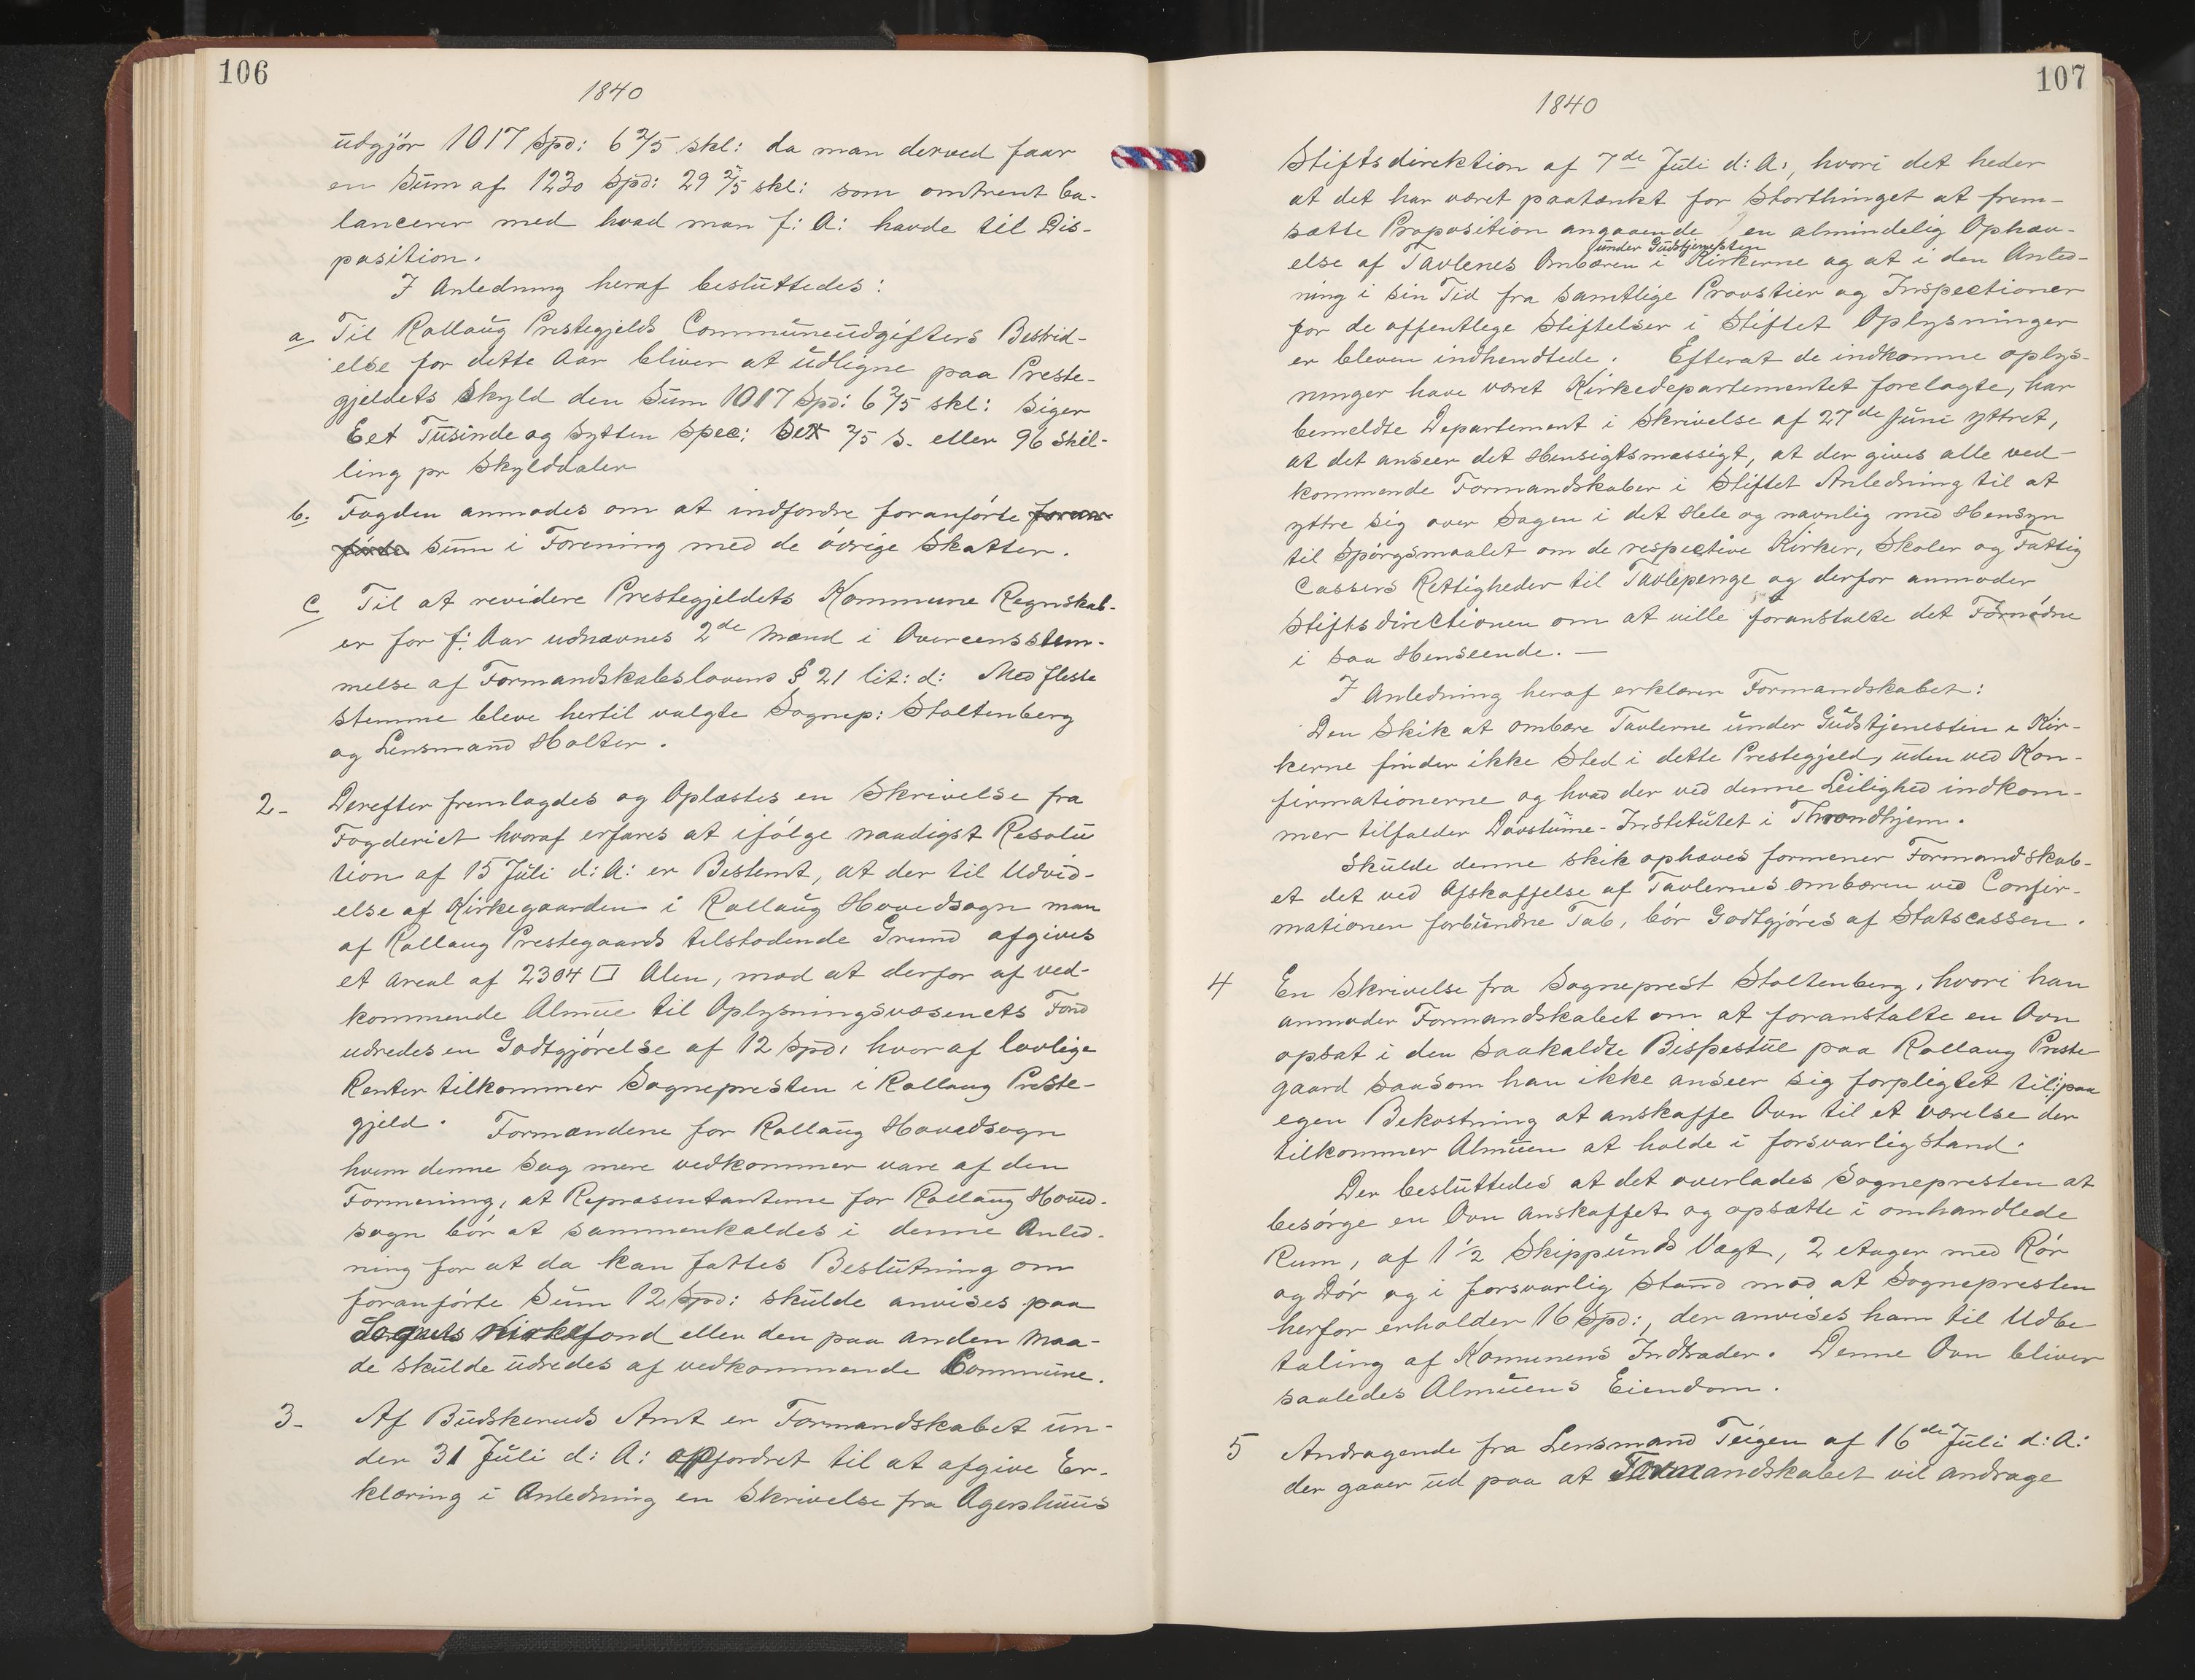 106
1840
udgjör 1017 Spd: 6 2/5 skl: da man derved faar
en Sum af 1230 Spd: 29 2/5 skl: som omtrent ba-
lancerer med hvad man f: A: havde til Dis-
position.
I Anledning heraf besluttedes:
a. Til Rollaug Prestegjelds Communeudgifters Bestrid-
else for dette Aar bliver at udligne paa Preste-
gjeldets Skyld den Sum 1017 Spd: 6 2/5 skl: siger
Eet Tusinde og Sytten Spec: Sex 2/5 s. eller 96 Skil-
ling pr Skylddaler
b. Fogden anmodes om at indfordre foranförte foran-
förte Sum i Forening med de övrige Skatter.
c Til at revidere Prestegjeldets Kommune Regnskab-
er for f: Aar udnævnes 2de Mænd i Overeensstem-
melse af Formandskabslovens § 21 lit: d: Med fleste
stemme bleve hertil valgte Sognep: Stoltenberg
og Lensmand Holter.
2- Derefter fremlagdes og Oplæstes en Skrivelse fra
Fogderiet hvoraf erfares at ifölge naadigst Resolu
tion af 15 Juli d: A: er Bestemt, at der til Udvid-
else af Kirkegaarden i Rollaug Hovedsogn man
af Rollaug Prestegaards tilstodende Grund afgives
et Areal af 2304 □ Alen, mod at derfor af ved-
kommende Almue til Oplysningsvæsenets Fond
udredes en Godtgjörelse af 12 Spd: hvoraf lovlige
Renter tilkommer Sognepresten i Rollaug Preste-
gjeld. Formændene for Rollaug Hovedsogn
hvem denne Sag mere vedkommer vare af den
Formening, at Repræsentanterne for Rollaug Hoved-
sogn bör at sammenkaldes i denne Anled-
ning for at da kan fattes Beslutning om
foranförte Sum 12 Spd: skulde anvises paa
Sognets Kirkefond eller den paa anden Maa-
de skulde udredes af vedkommende Commune.
3- Af Budskeruds Amt er Formandskabet un-
der 31 Juli d: A: opfordret til at afgive Er-
klæring i Anledning en Skrivelse fra Agershuus
107
1840
Stiftsdirektion af 7de Juli d: A:, hvori det heder
at det har været paatænkt for Storthinget at frem-
sætte Proposition angaaende en almindelig Ophæv-
under Gudstjenesten
else af Tavlenes Ombæren i Kirkerne og at i den Anled-
ning i sin Tid fra samtlige Provstier og Inspectioner
for de offentlege Stiftelser i Stiftet Oplysninger
er bleven indhendtede. Efterat de indkomne oplys-
ninger have været Kirkedepartementet forelagte, har
bemeldte Departement i Skrivelse af 27de Juni yttret,
at det anseer det Hensigtsmæssigt, at der gives alle ved-
kommende Formandskaber i Stiftet Anledning til at
yttre sig over Sagen i det Hele og navnlig med Hensyn
til Spörgsmaalet om de respective Kirker, Skoler og Fattig
Cassers Rettigheder til Tavlepenge og derfor anmoder
Stiftsdirectionen om at ville foranstalte det Fornödne
i saa Henseende. —
I Anledning heraf erklærer Formandskabet:
Den Skik at ombære Tavlerne under Gudstjenesten i Kir-
kerne finder ikke Sted i dette Prestegjeld, uden ved Kon-
firmationerne og hvad der ved denne Leilighed indkom-
mer tilfalder Dövstume-Institutet i Throndhjem.
Skulde denne skik ophæves formener Formandskab-
et det ved Afskaffelse af Tavlernes ombæren ved Confir-
mationen forbundne Tab, bör Godtgjöres af Statscassen.
4 En Skrivelse fra Sogneprest Stoltenberg, hvori han
anmoder Formandskabet om at foranstalte en Ovn
opsat i den saakaldte Bispestue paa Rollaug Preste
gaard saasom han ikke anseer sig forpligtet til: paa
egen Bekostning at anskaffe Ovn til et værelse der
tilkommer Almuen at holde i forsvarlig stand.
Der besluttedes at det overlades Sognepresten at
besörge en Ovn Anskaffet og opsætte i omhandlede
Rum, af 1 1/2 Skippunds Vægt, 2 etager med Rör
og Dör og i forsvarlig Stand mod at Sognepresten
herfor erholder 16 Spd:, der anvises ham til Udbe
taling af Komunens Indtræder. Denne Ovn bliver
saaledes Almuens Eiendom.
5 Andragende fra Lensmand Teigen af 16de Juli d: A:
der gaaer ud paa at Formandskabet vil andrage